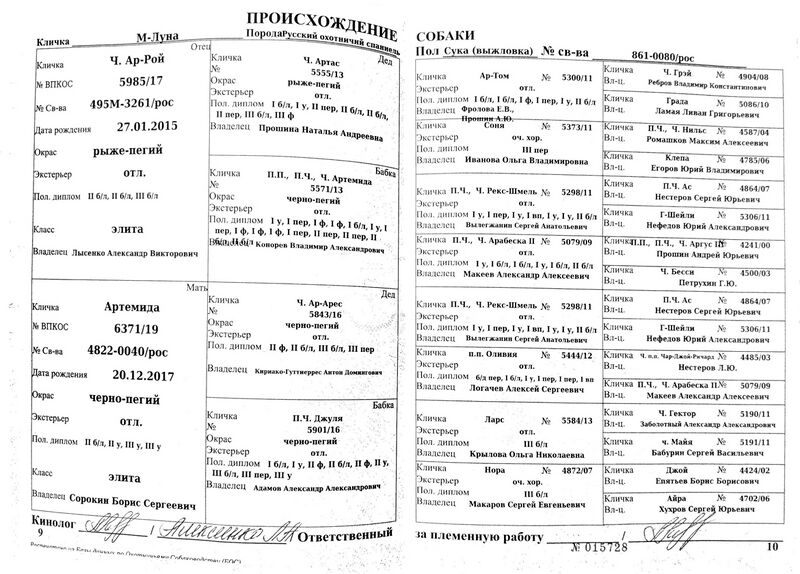 ПРОИСХОЖДЕНИЕ
Кличка М-Луна Порода Русский охотничий спаниель
Отец
Кличка Ч. Ар-Рой
№ ВПКОС 5985/17
№ Св-ва 495М-3261/рос
Дата рождения 27.01.2015
Окрас рыже-пегий
Экстерьер отл.
Пол. диплом II б/л, II б/л, III б/л
Класс элита
Владелец Лысенко Александр Викторович
Мать
Кличка Артемида
№ ВПКОС 6371/19
№ Св-ва 4822-0040/рос
Дата рождения 20.12.2017
Окрас черно-пегий
Экстерьер отл.
Пол. диплом II б/л, II у, III у, III у
Класс элита
Владелец Сорокин Борис Сергеевич
Дед
Кличка Ч. Артас
№ 5555/13
Окрас рыже-пегий
Экстерьер отл.
Пол. диплом I б/л, I у, II пер, II б/л, II б/л,
II пер, III б/л, III ф
Владелец Прошина Наталья Андреевна
Бабка
Кличка П.П., П.Ч., Ч. Артемида
№ 5571/13
Окрас черно-пегий
Экстерьер отл.
Пол. диплом I у, I пер, I ф, I ф, I б/л, I у, I
пер, I ф, I ф, I пер, I пер, II пер, II пер, II
б/л, II б/л
Владелец Конорев Владимир Александрович
Дед
Кличка Ч. Ар-Арес
№ 5843/16
Окрас черно-пегий
Экстерьер отл.
Пол. диплом II ф, II б/л, III б/л, III пер
Владелец Кириако-Гуттиеррес Антон Домингович
Бабка
Кличка П.Ч. Джуля
№ 5901/16
Окрас черно-пегий
Экстерьер отл.
Пол. диплом I б/л, I у, II ф, II б/л, II ф, II у,
III б/л, III пер, III у
Владелец Адамов Александр Александрович
Кинолог / Алексеенко Ответственный
9
СОБАКИ
Пол Сука (выжловка) № св-ва 861-0080/рос
Кличка Ар-Том № 5300/11
Экстерьер отл.
Пол. диплом I б/л, I б/л, I ф, I пер, I у, II б/л
Владелец Фролова Е.В.,
Прошин А.Ю.
Кличка Соня № 5373/11
Экстерьер оч. хор.
Пол. диплом III пер
Владелец Иванова Ольга Владимировна
Кличка П.Ч., Ч. Рекс-Шмель № 5298/11
Экстерьер отл.
Пол. диплом I у, I пер, I у, I вп, I у, I у, II б/л
Владелец Вылегжанин Сергей Анатольевич
Кличка П.Ч., Ч. Арабеска II № 5079/09
Экстерьер отл.
Пол. диплом I б/л, I у, I б/л, I у, I б/л, II б/л
Владелец Макеев Александр Александрович
Кличка П.Ч., Ч. Рекс-Шмель № 5298/11
Экстерьер отл.
Пол. диплом I у, I пер, I у, I вп, I у, I у, II б/л
Владелец Вылегжанин Сергей Анатольевич
Кличка п.п. Оливия № 5444/12
Экстерьер отл.
Пол. диплом б/д пер, I б/л, I у, I пер, I пер, I вп
Владелец Логачев Алексей Сергеевич
Кличка Ларс № 5584/13
Экстерьер отл.
Пол. диплом III б/л
Владелец Крылова Ольга Николаевна
Кличка Нора № 4872/07
Экстерьер отл.
Пол. диплом III б/л
Владелец Макаров Сергей Евгеньевич
Кличка Ч. Грэй № 4904/08
Вл-ц. Ребров Владимир Константинович
Кличка Града № 5086/10
Вл-ц. Ламая Ливан Григорьевич
Кличка П.Ч., Ч. Нильс № 4587/04
Вл-ц. Ромашков Максим Алексеевич
Кличка Клепа № 4785/06
Вл-ц. Егоров Юрий Владимирович
Кличка П.Ч. Ас № 4864/07
Вл-ц. Нестеров Сергей Юрьевич
Кличка Г-Шейли № 5306/11
Вл-ц. Нефедов Юрий Алексеевич
Кличка П.П., П.Ч., Ч. Аргус III № 4241/00
Вл-ц. Прошин Андрей Юрьевич
Кличка Ч. Бесси № 4500/03
Вл-ц. Петрухин Г.Ю.
Кличка П.Ч. Ас № 4864/07
Вл-ц. Нестеров Сергей Юрьевич
Кличка Г-Шейли № 5306/11
Вл-ц. Нефедов Юрий Алексеевич
Кличка Ч. п.п. Чар-Джой-Ричард № 4485/03
Вл-ц. Нестеров Л.Ю.
Кличка П.Ч., Ч. Арабеска II № 5079/09
Вл-ц. Макеев Александр Александрович
Кличка Ч. Гектор № 5190/11
Вл-ц. Заболотный Александр Александрович
Кличка ч. Майя № 5191/11
Вл-ц. Бабурин Сергей Васильевич
Кличка Джой № 4424/02
Вл-ц. Епятьев Борис Борисович
Кличка Айра № 4702/06
Вл-ц. Хухров Сергей Юрьевич
за племенную работу /
№ 015728 10